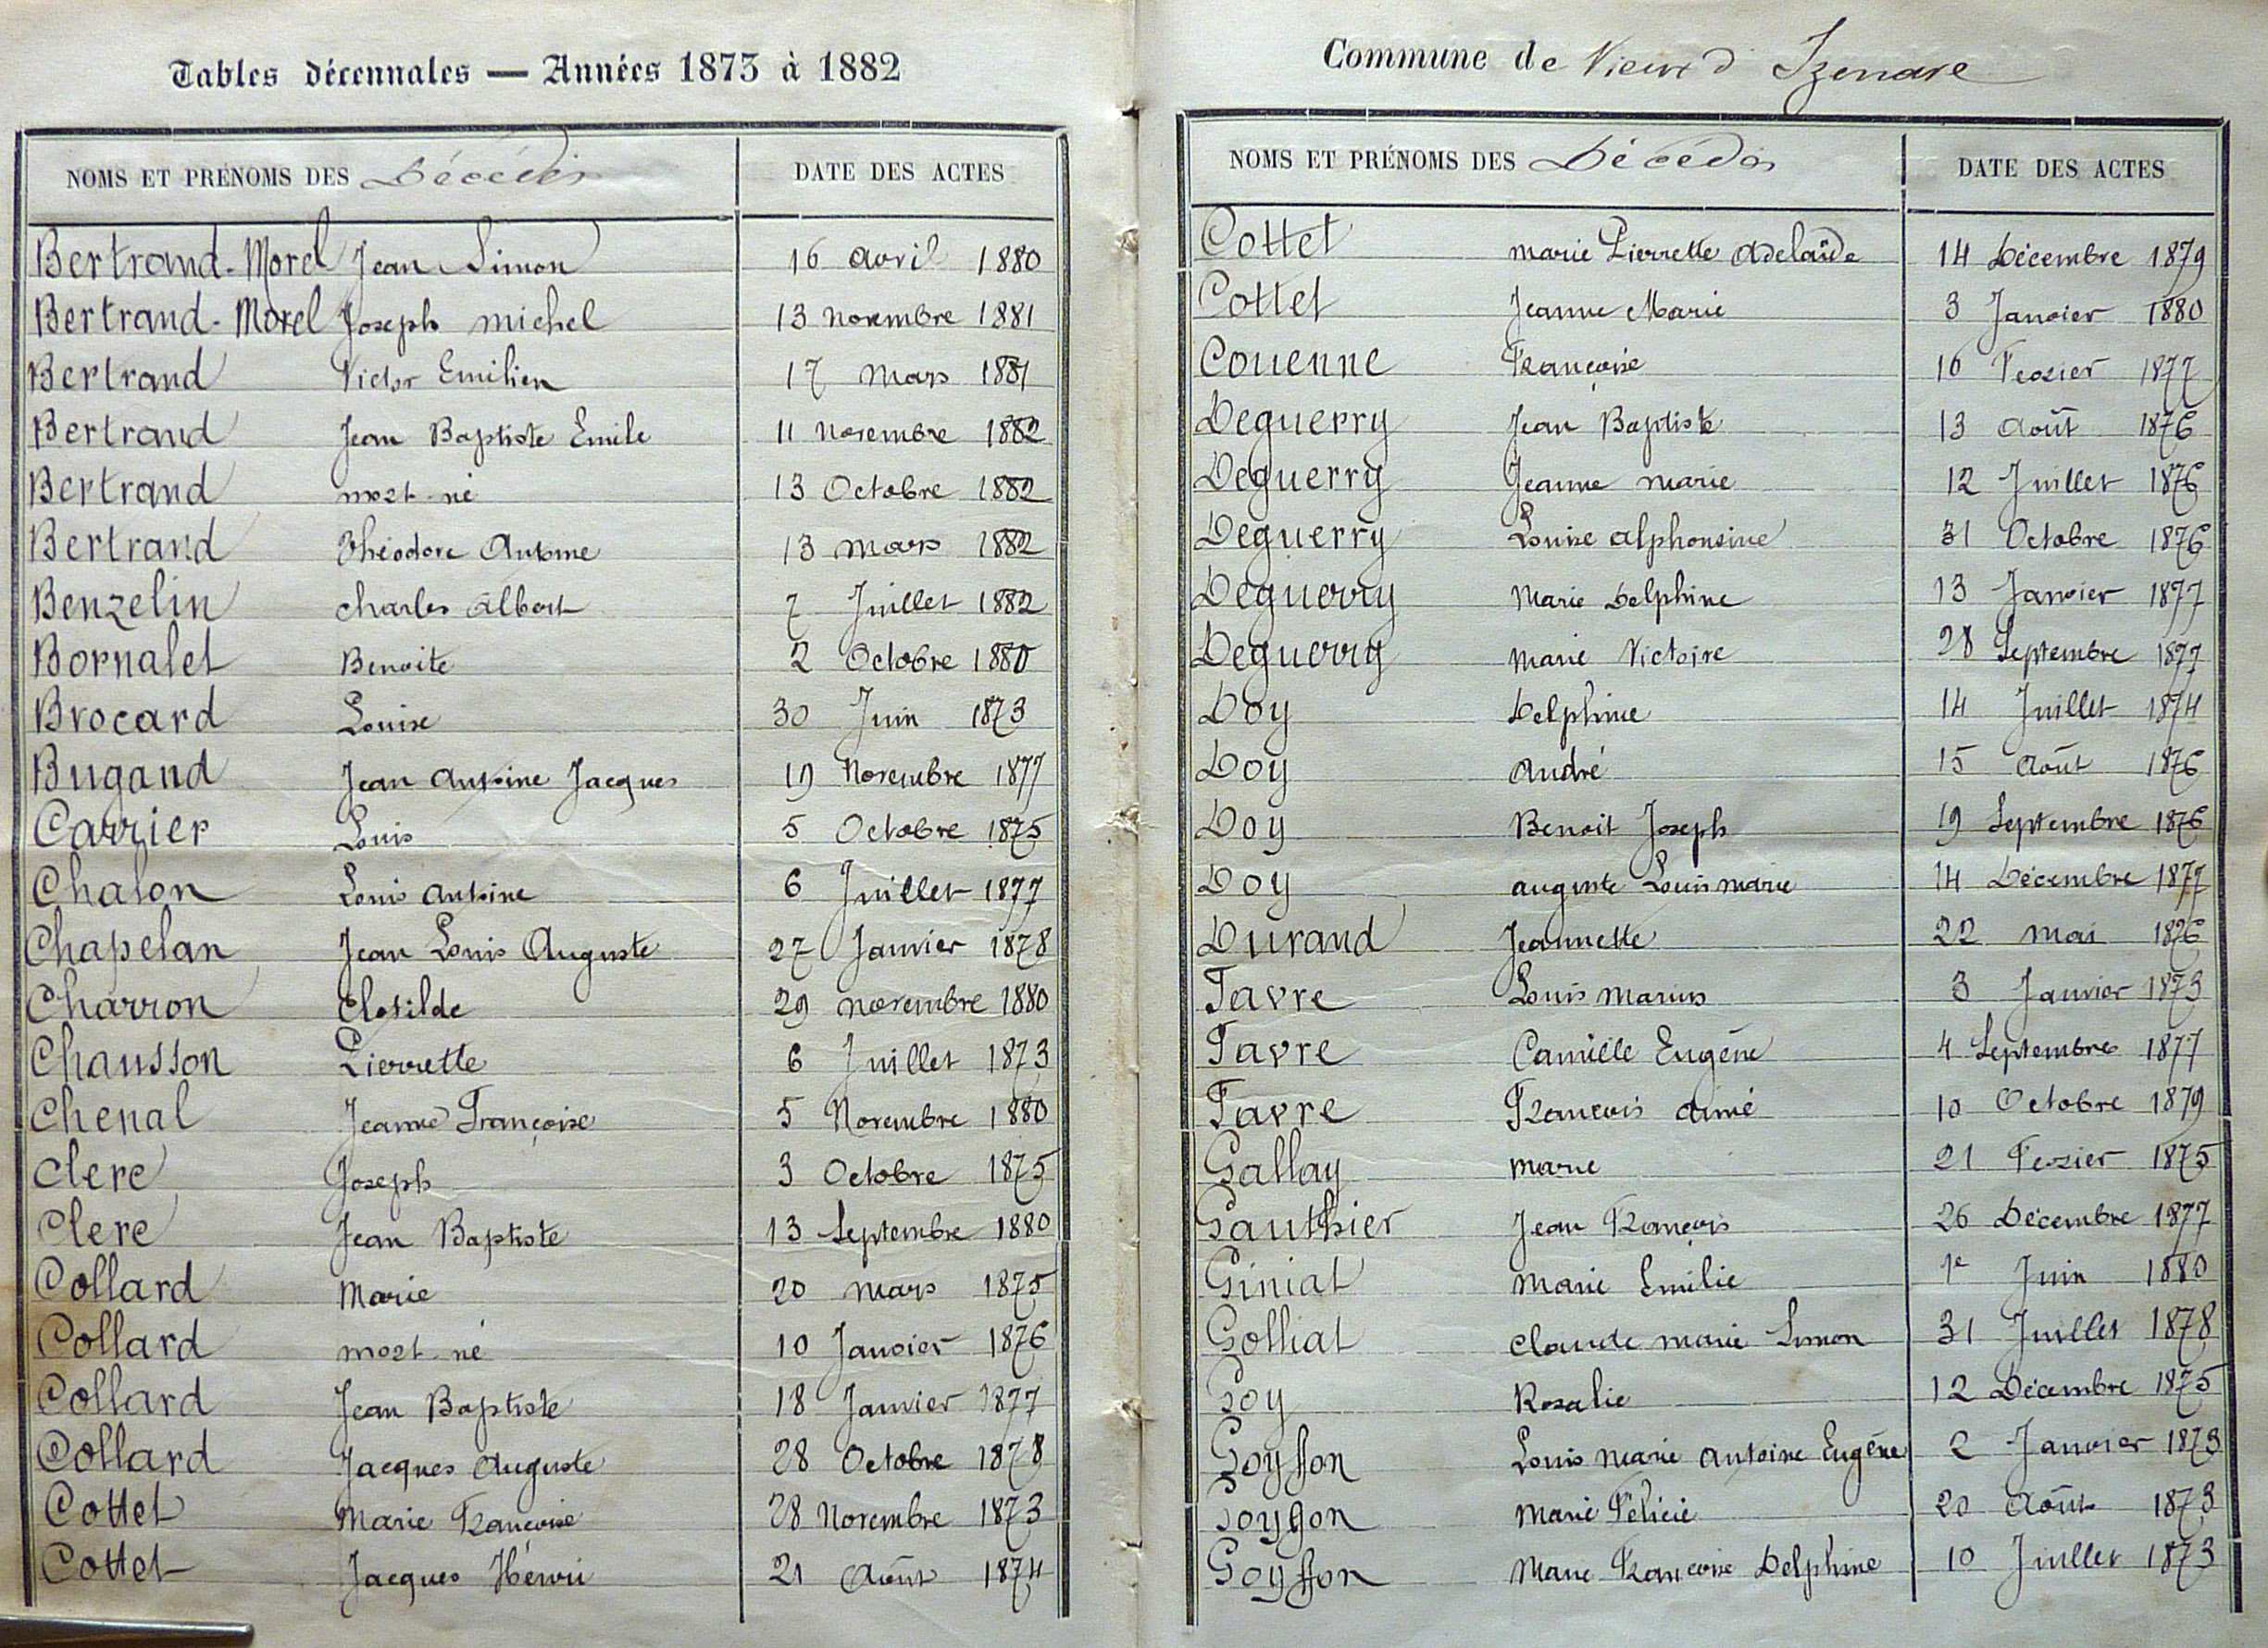 Tables décennales — Années 1873 à 1882
NOMS ET PRÉNOMS DES Décédés DATE DES ACTES
Bertrand-Morel Jean Simon 16 avril 1880
Bertrand-Morel Joseph michel 13 novembre 1881
Bertrand Victor Emilien 17 mars 1881
Bertrand Jean Baptiste Emile 11 novembre 1882
Bertrand mort-né 13 Octobre 1882
Bertrand Théodore Antoine 13 mars 1882
Benzelin charles albert 7 Juillet 1882
Bornalet Benoite 2 Octobre 1880
Brocard Louise 30 Juin 1873
Bugand Jean antoine Jacques 19 Novembre 1877
Carrier Louis 5 Octobre 1875
Chalon Louis antoine 6 Juillet 1877
Chapelan Jean Louis Auguste 27 Janvier 1878
Charron Clotilde 29 novembre 1880
Chausson Pierrette 6 Juillet 1873
Chenal Jeanne Françoise 5 Novembre 1880
Clerc Joseph 3 Octobre 1875
Clerc Jean Baptiste 13 Septembre 1880
Collard Marie 20 mars 1875
Collard mort-né 10 Janvier 1876
Collard Jean Baptiste 18 Janvier 1877
Collard Jacques Auguste 28 Octobre 1878
Cottet Marie Françoise 28 Novembre 1873
Cottet Jacques Hénri 21 Août 1874
Commune de Vieux d'Izenave
NOMS ET PRÉNOMS DES Décédés DATE DES ACTES
Cottet marie Pierrette adelaïde 14 Décembre 1879
Cottet Jeanne Marie 3 Janvier 1880
Couenne Françoise 10 Fevrier 1877
Deguerry Jean Baptiste 13 août 1876
Deguerry Jeanne marie 12 Juillet 1876
Deguerry Louise alphonsine 31 Octobre 1876
Deguerry Marie Delphine 13 Janvier 1877
Deguerry marie Victoire 28 Septembre 1877
Doy Delphine 14 Juillet 1874
Doy andré 15 août 1876
Doy Benoit Joseph 19 Septembre 1876
Doy auguste Louis marie 14 Décembre 1877
Durand Jeannette 22 mai 1876
Favre Louis marius 3 Janvier 1873
Favre Camille Eugène 4 Septembre 1877
Favre François aimé 10 Octobre 1879
Gallay marie 21 Fevrier 1875
Gauthier Jean François 26 Décembre 1877
Giniat Marie Emilie 1e Juin 1880
Golliat claude marie Simon 31 Juillet 1878
Goy Rosalie 12 Décembre 1875
Goyffon Louis marie antoine Eugène 2 Janvier 1873
Goyffon Marie Félicie 20 Août 1873
Goyffon Marie Françoise Delphine 10 Juillet 1873